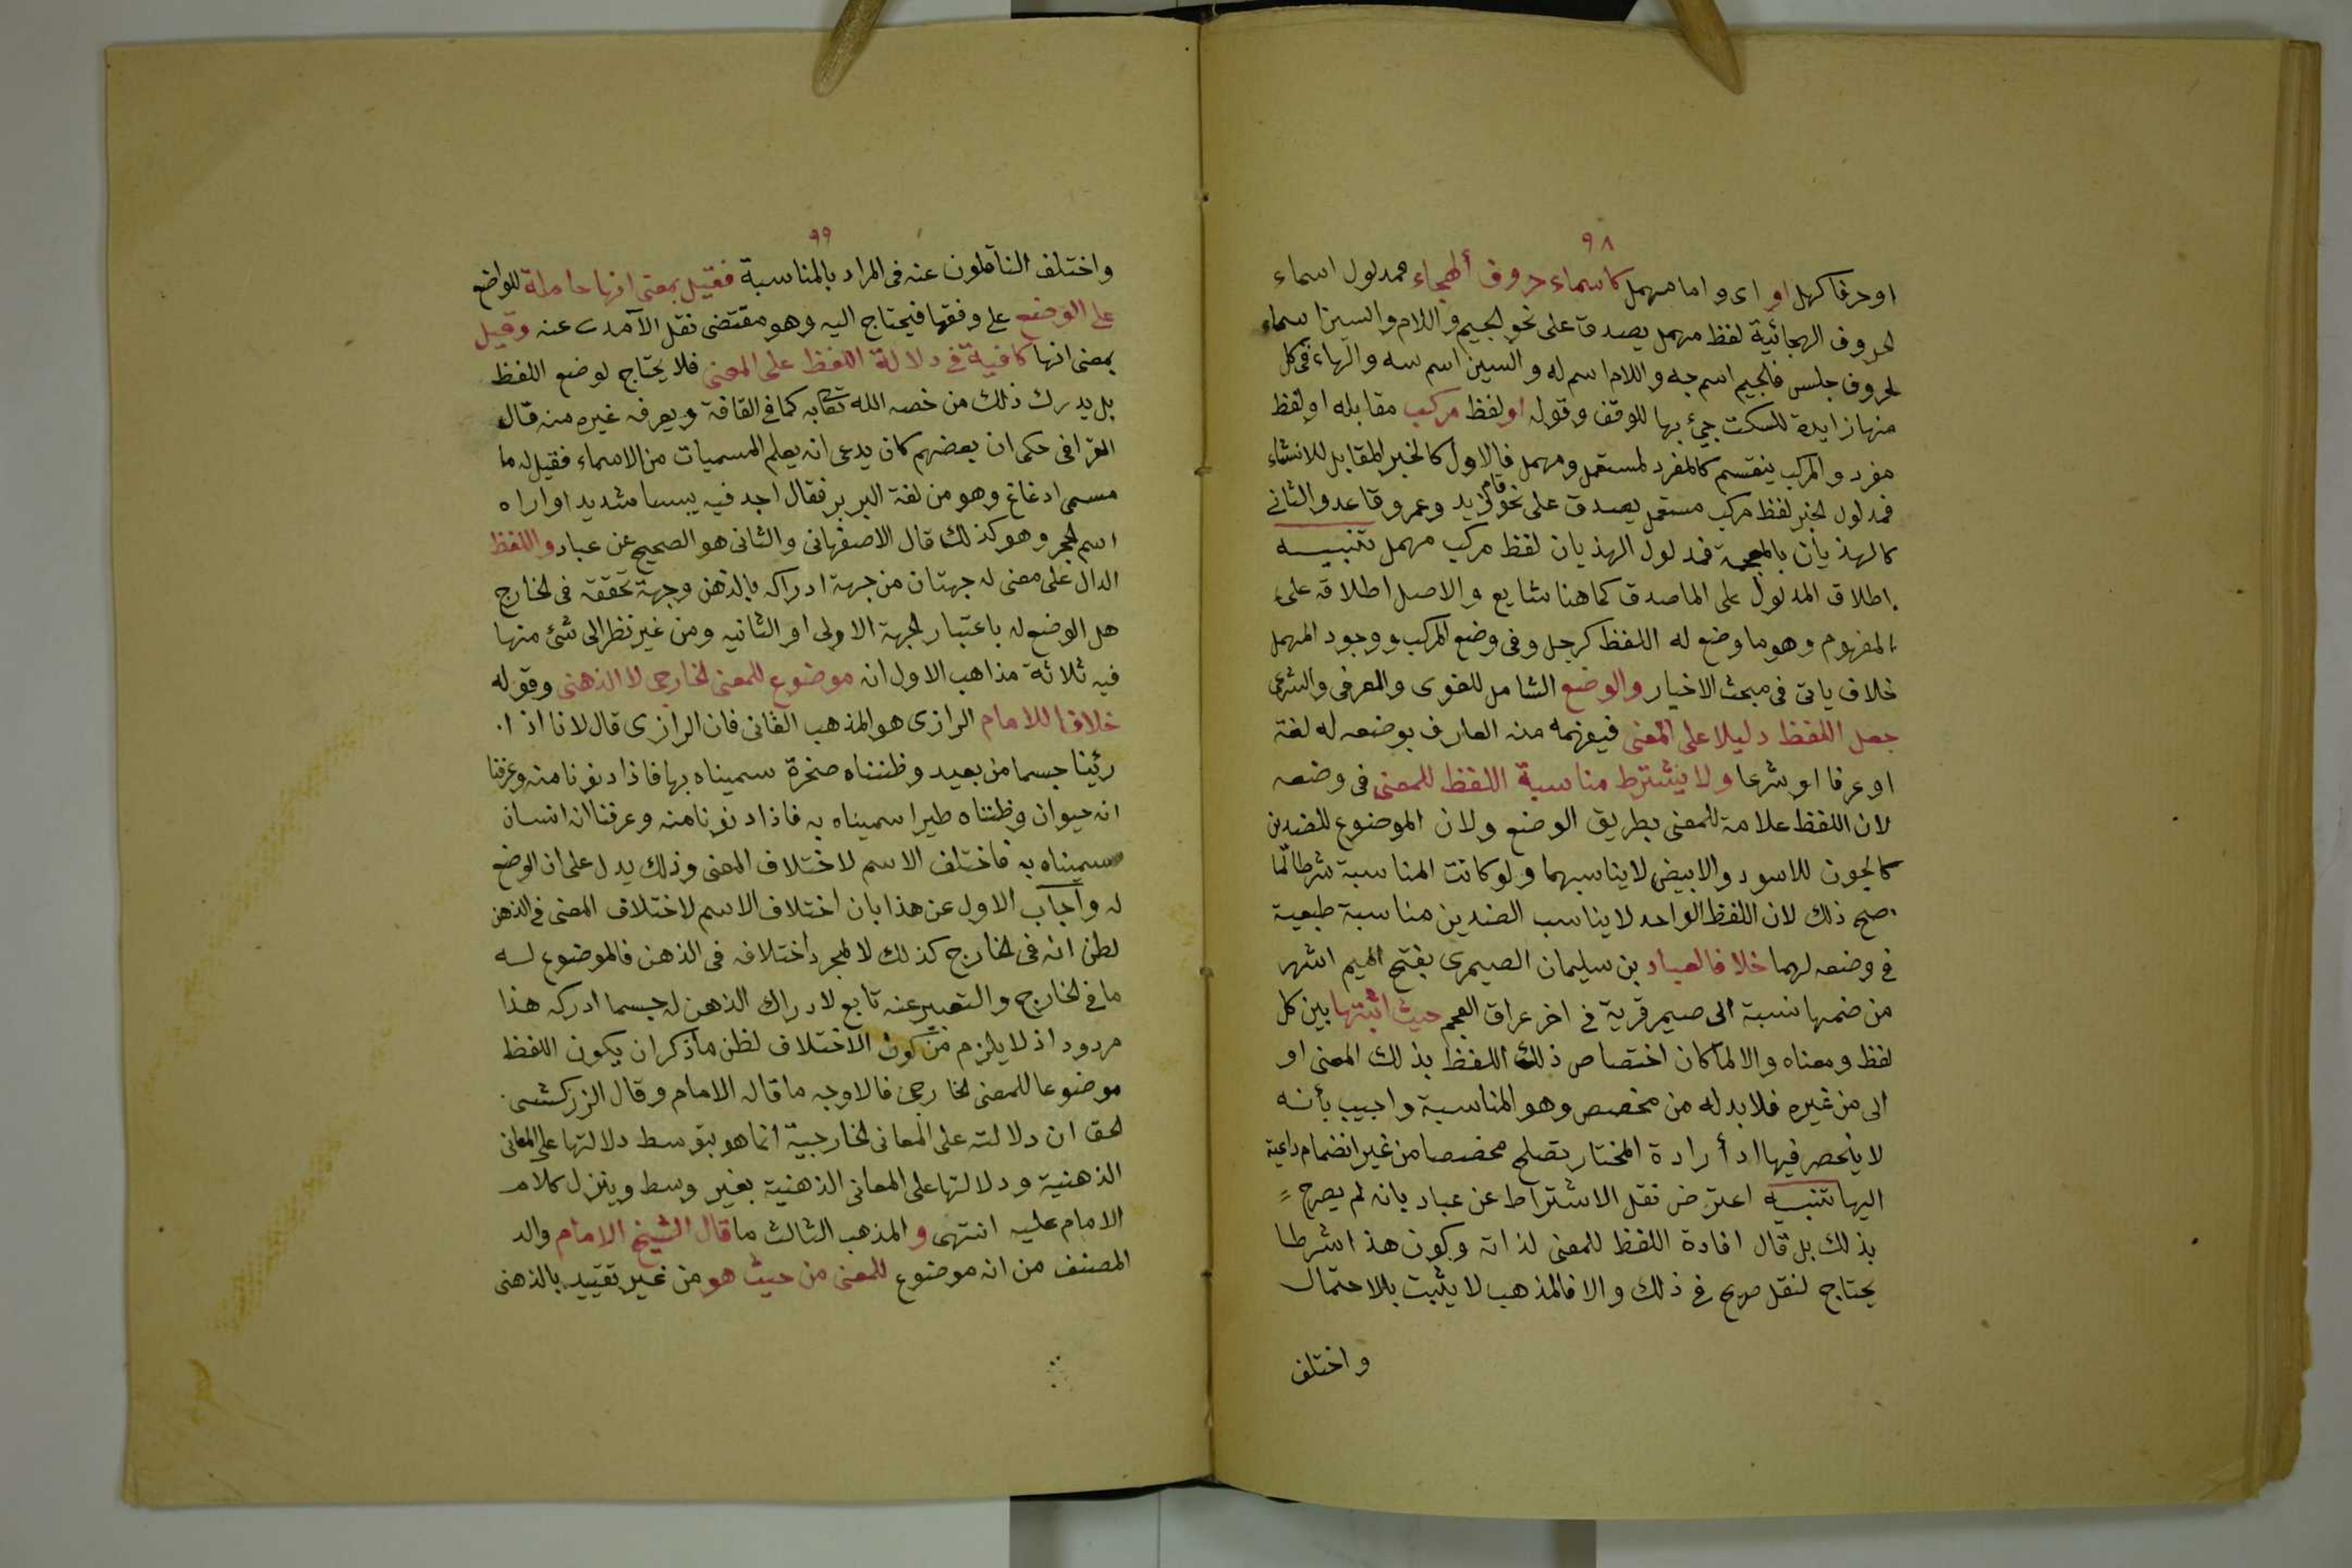 ٩٨
اوحرفا كهل او اى واما مهمل كاسماء حروف الهجاء فمدلول اسماء
الحروف الهجائية لفظ مهمل يصدق على نحو الجيم واللام والسين اسماء
لحروف جلس فالجيم اسم جه واللام اسم له والسين اسم سه والهاء فى كل
منها زايدة للسكت جئ بها للوقف وقوله او لفظ مركب مقابله او لفظ
مفرد والمركب ينقسم كالمفرد لمستعمل ومهمل فالاول كالخبر المقابل للانشاء
فمدلول الخبر لفظ مركب مستعمل يصدق على نحو قام زيد وعمرو قاعد والثانى
كالهذيان بالمعجمة فمدلول الهذيان لفظ مركب مهمل تنبيه
اطلاق المدلول على الماصدق كما هنا شايع والاصل اطلاقه على
المفهوم وهو ما وضع له اللفظ كرجل وفى وضع المركب ووجود المهمل
خلاف ياتى فى مبحث الاخبار والوضع الشامل للغوى والعرفى والشرعى
جعل اللفظ دليلا على المعنى فيفهمه منه العارف بوضعه له لغة
او عرفا او شرعا ولا يشترط مناسبة اللفظ للمعنى فى وضعه
لان اللفظ علامة للمعنى بطريق الوضع ولان الموضوع للضدين
كالجون للاسود والابيض لا يناسبهما ولو كانت المناسبة شرطا لما
صح ذلك لان اللفظ الواحد لا يناسب الضدين مناسبة طبعية
فى وضعه لهما خلافا لعباد بن سليمان الصيمرى بفتح الميم اشهر
من ضمها نسبة الى صيمر قرية فى اخر عراق العجم حيث اثبتها بين كل
لفظ ومعناه والا لما كان اختصاص ذلك اللفظ بذلك المعنى او
الى من غيره فلا بد له من مخصص وهو المناسبة واجيب بأنه
لا ينحصر فيها اد أرادة المختار تصلح مخصصا من غير انضمام داعية
اليها تنبيه اعترض نقل الاشتراط عن عباد بانه لم يصرح
بذلك بل قال افادة اللفظ للمعنى لذاته وكون هذا شرطا
يحتاج لنقل صريح فى ذلك والا فالمذهب لا يثبت بالاحتمال
واختلف
٩٩
واختلف الناقلون عنه فى المراد بالمناسبة فقيل بمعنى انها حاملة للواضع
على الوضع على وفقها فيحتاج اليه وهو مقتضى نقل الآمدى عنه وقيل
بمعنى انها كافية فى دلالة اللفظ على المعنى فلا يحتاج لوضع اللفظ
بل يدرك ذلك من خصه الله تعالى به كما فى القافة ويعرفه غيره منه قال
القرافى حكى ان بعضهم كان يدعى انه يعلم المسميات من الاسماء فقيل له ما
مسمى ادغاغ وهو من لغة البربر فقال اجد فيه يبسا شديدا واراه
اسم الحجر وهو كذلك قال الاصفهانى والثانى هو الصحيح عن عباد واللفظ
الدال على معنى له جهتان من جهة ادراكه بالذهن وجهة تحققه فى الخارج
هل الوضع له باعتبار الجهة الاولى او الثانيه ومن غير نظر الى شئ منها
فيه ثلاثة مذاهب الاول انه موضوع للمعنى الخارجى لا الذهنى وقوله
خلافا للامام الرازى هو المذهب الثانى فان الرازى قال لانا اذا
رئينا جسما من بعيد وظنناه صخرة سميناه بها فاذا دنونا منه وعرفنا
انه حيوان وظنناه طيرا سميناه به فاذا دنونا منه وعرفنا انه انسان
سميناه به فاختلف الاسم لاختلاف المعنى وذلك يدل على ان الوضع
له وأجاب الاول عن هذا بان اختلاف الاسم لاختلاف المعنى فى الذهن
لظن انه فى الخارج كذلك لا لمجرد اختلافه فى الذهن فالموضوع له
ما فى الخارج والتعبير عنه تابع لادراك الذهن له حسبما ادركه هذا
مردود اذ لا يلزم من كون الاختلاف لظن ما ذكر ان يكون اللفظ
موضوعا للمعنى الخارجى فالاوجه ما قاله الامام وقال الزركشى
الحق ان دلالته على المعانى الخارجية انما هو بتوسط دلالتها على المعانى
الذهنية ودلالتها على المعانى الذهنية بغير وسط وينزل كلام
الامام عليه انتهى والمذهب الثالث ما قال الشيخ الامام والد
المصنف من انه موضوع للمعنى من حيث هو من غير تقييد بالذهنى